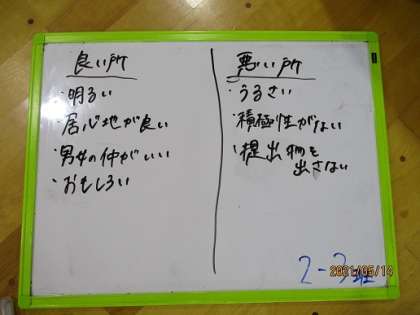 良い所
・明るい
・居心地が良い
・男女の仲がいい
・おもしろい
悪い所
・うるさい
・積極性がない
・提出物を
出さない
2-3班
2021/05/14